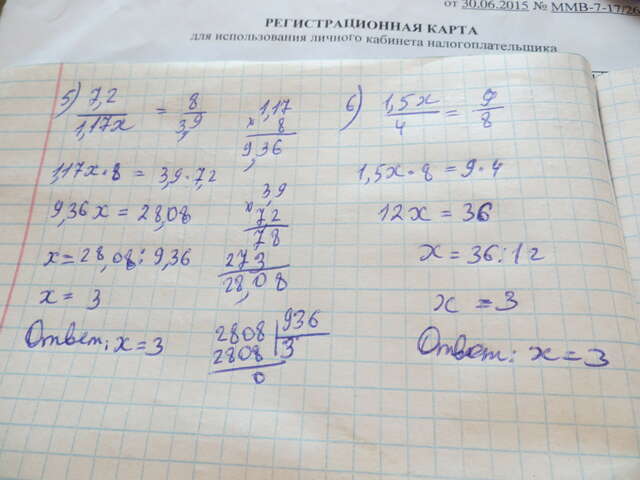 от 30.06.2015 № ММВ-7-17/26
РЕГИСТРАЦИОННАЯ КАРТА
для использования личного кабинета налогоплательщика
5) 7,2 / 1,17x = 8 / 3,9
1,17
× 8
9,36
1,17x · 8 = 3,9 · 7,2
9,36x = 28,08
3,9
× 7,2
78
273
28,08
x = 28,08 : 9,36
x = 3
Ответ: x = 3
2808 | 936
2808 | 3
0
6) 1,5x / 4 = 9 / 8
1,5x · 8 = 9 · 4
12x = 36
x = 36 : 12
x = 3
Ответ: x = 3